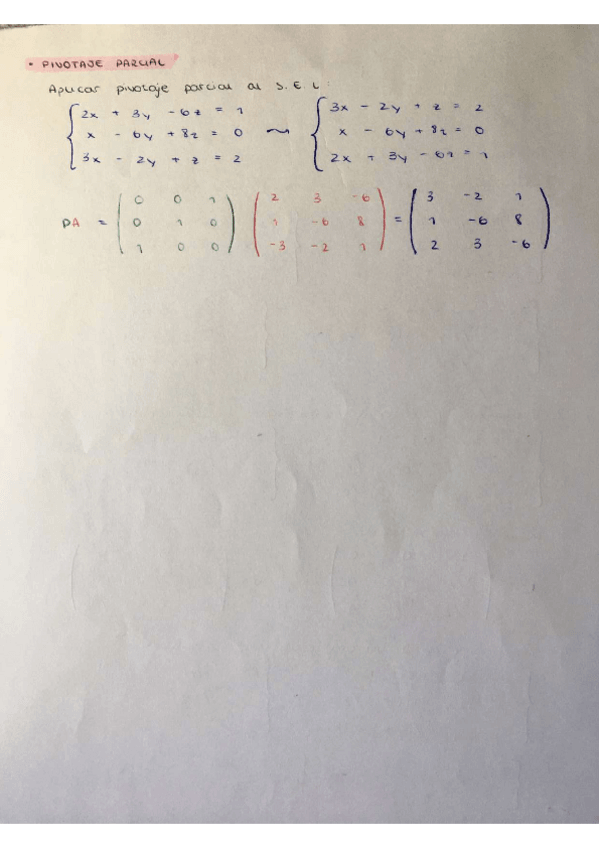 • PIVOTAJE PARCIAL
Aplicar pivotaje parcial al S.E.L:
2x + 3y - 6z = 1
x - 6y + 8z = 0
3x - 2y + z = 2
~
3x - 2y + z = 2
x - 6y + 8z = 0
2x + 3y - 6z = 1
PA = ( 0 0 1 ) ( 2 3 -6 ) = ( 3 -2 1 )
( 0 1 0 ) ( 1 -6 8 ) ( 1 -6 8 )
( 1 0 0 ) ( -3 -2 1 ) ( 2 3 -6 )